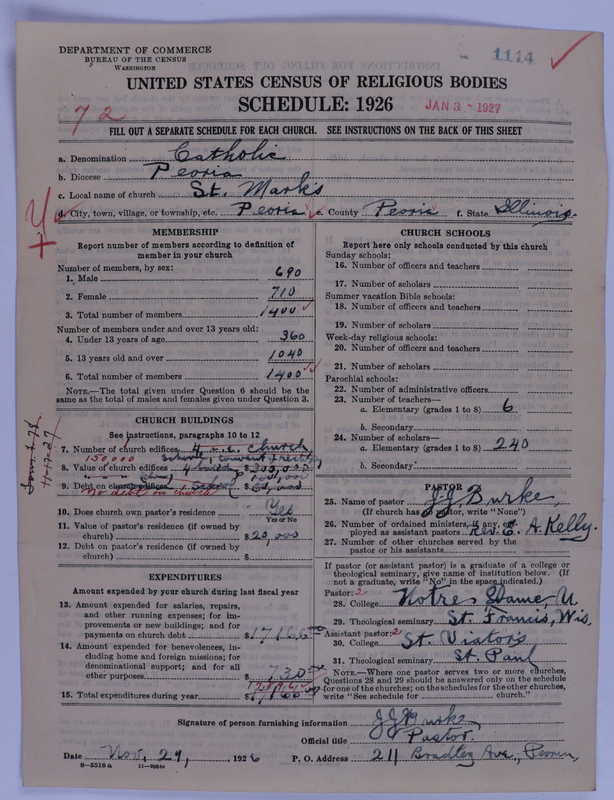 DEPARTMENT OF COMMERCE
BUREAU OF THE CENSUS
WASHINGTON
1114
UNITED STATES CENSUS OF RELIGIOUS BODIES
SCHEDULE: 1926
JAN 3 - 1927
72
FILL OUT A SEPARATE SCHEDULE FOR EACH CHURCH. SEE INSTRUCTIONS ON THE BACK OF THIS SHEET
a. Denomination Catholic
b. Diocese Peoria
c. Local name of church St. Mark's
d. City, town, village, or township, etc. Peoria e. County Peoria f. State Illinois
MEMBERSHIP
Report number of members according to definition of member in your church
Number of members, by sex:
1. Male 690
2. Female 710
3. Total number of members 1400
Number of members under and over 13 years old:
4. Under 13 years of age 360
5. 13 years old and over 1040
6. Total number of members 1400
NOTE.—The total given under Question 6 should be the
same as the total of males and females given under Question 3.
CHURCH BUILDINGS
See instructions, paragraphs 10 to 12
7. Number of church edifices Church
150,000
8. Value of church edifices
9. Debt on church edifices
No debt on church
10. Does church own pastor's residence? Yes
Yes or No
11. Value of pastor's residence (if owned by
church) $20,000
12. Debt on pastor's residence (if owned by
church) $
EXPENDITURES
Amount expended by your church during last fiscal year
13. Amount expended for salaries, repairs,
and other running expenses; for im-
provements or new buildings; and for
payments on church debt $
14. Amount expended for benevolences, in-
cluding home and foreign missions; for
denominational support; and for all
other purposes 730
15. Total expenditures during year $
CHURCH SCHOOLS
Report here only schools conducted by this church
Sunday schools:
16. Number of officers and teachers
17. Number of scholars
Summer vacation Bible schools:
18. Number of officers and teachers
19. Number of scholars
Week-day religious schools:
20. Number of officers and teachers
21. Number of scholars
Parochial schools:
22. Number of administrative officers
23. Number of teachers—
a. Elementary (grades 1 to 8) 6
b. Secondary
24. Number of scholars—
a. Elementary (grades 1 to 8) 240
b. Secondary
PASTOR
25. Name of pastor J.J. Burke,
(If church has no pastor, write "None")
26. Number of ordained ministers, if any, em-
ployed as assistant pastors Rev. E. A. Kelly.
27. Number of other churches served by the
pastor or his assistants
If pastor (or assistant pastor) is a graduate of a college or
theological seminary, give name of institution below. (If
not a graduate, write "No" in the space indicated.)
Pastor: 2
28. College Notre Dame U
29. Theological seminary St. Francis, Wis.
Assistant pastor: 2
30. College St. Viators
31. Theological seminary St. Paul
NOTE.—Where one pastor serves two or more churches,
Questions 28 and 29 should be answered only on the schedule
for one of the churches; on the schedules for the other churches,
write "See schedule for church."
Signature of person furnishing information J.J. Burke
Official title Pastor
Date Nov. 29, 1926 P. O. Address 211 Bradley Ave., Peoria,
8—5518 a 11—9054